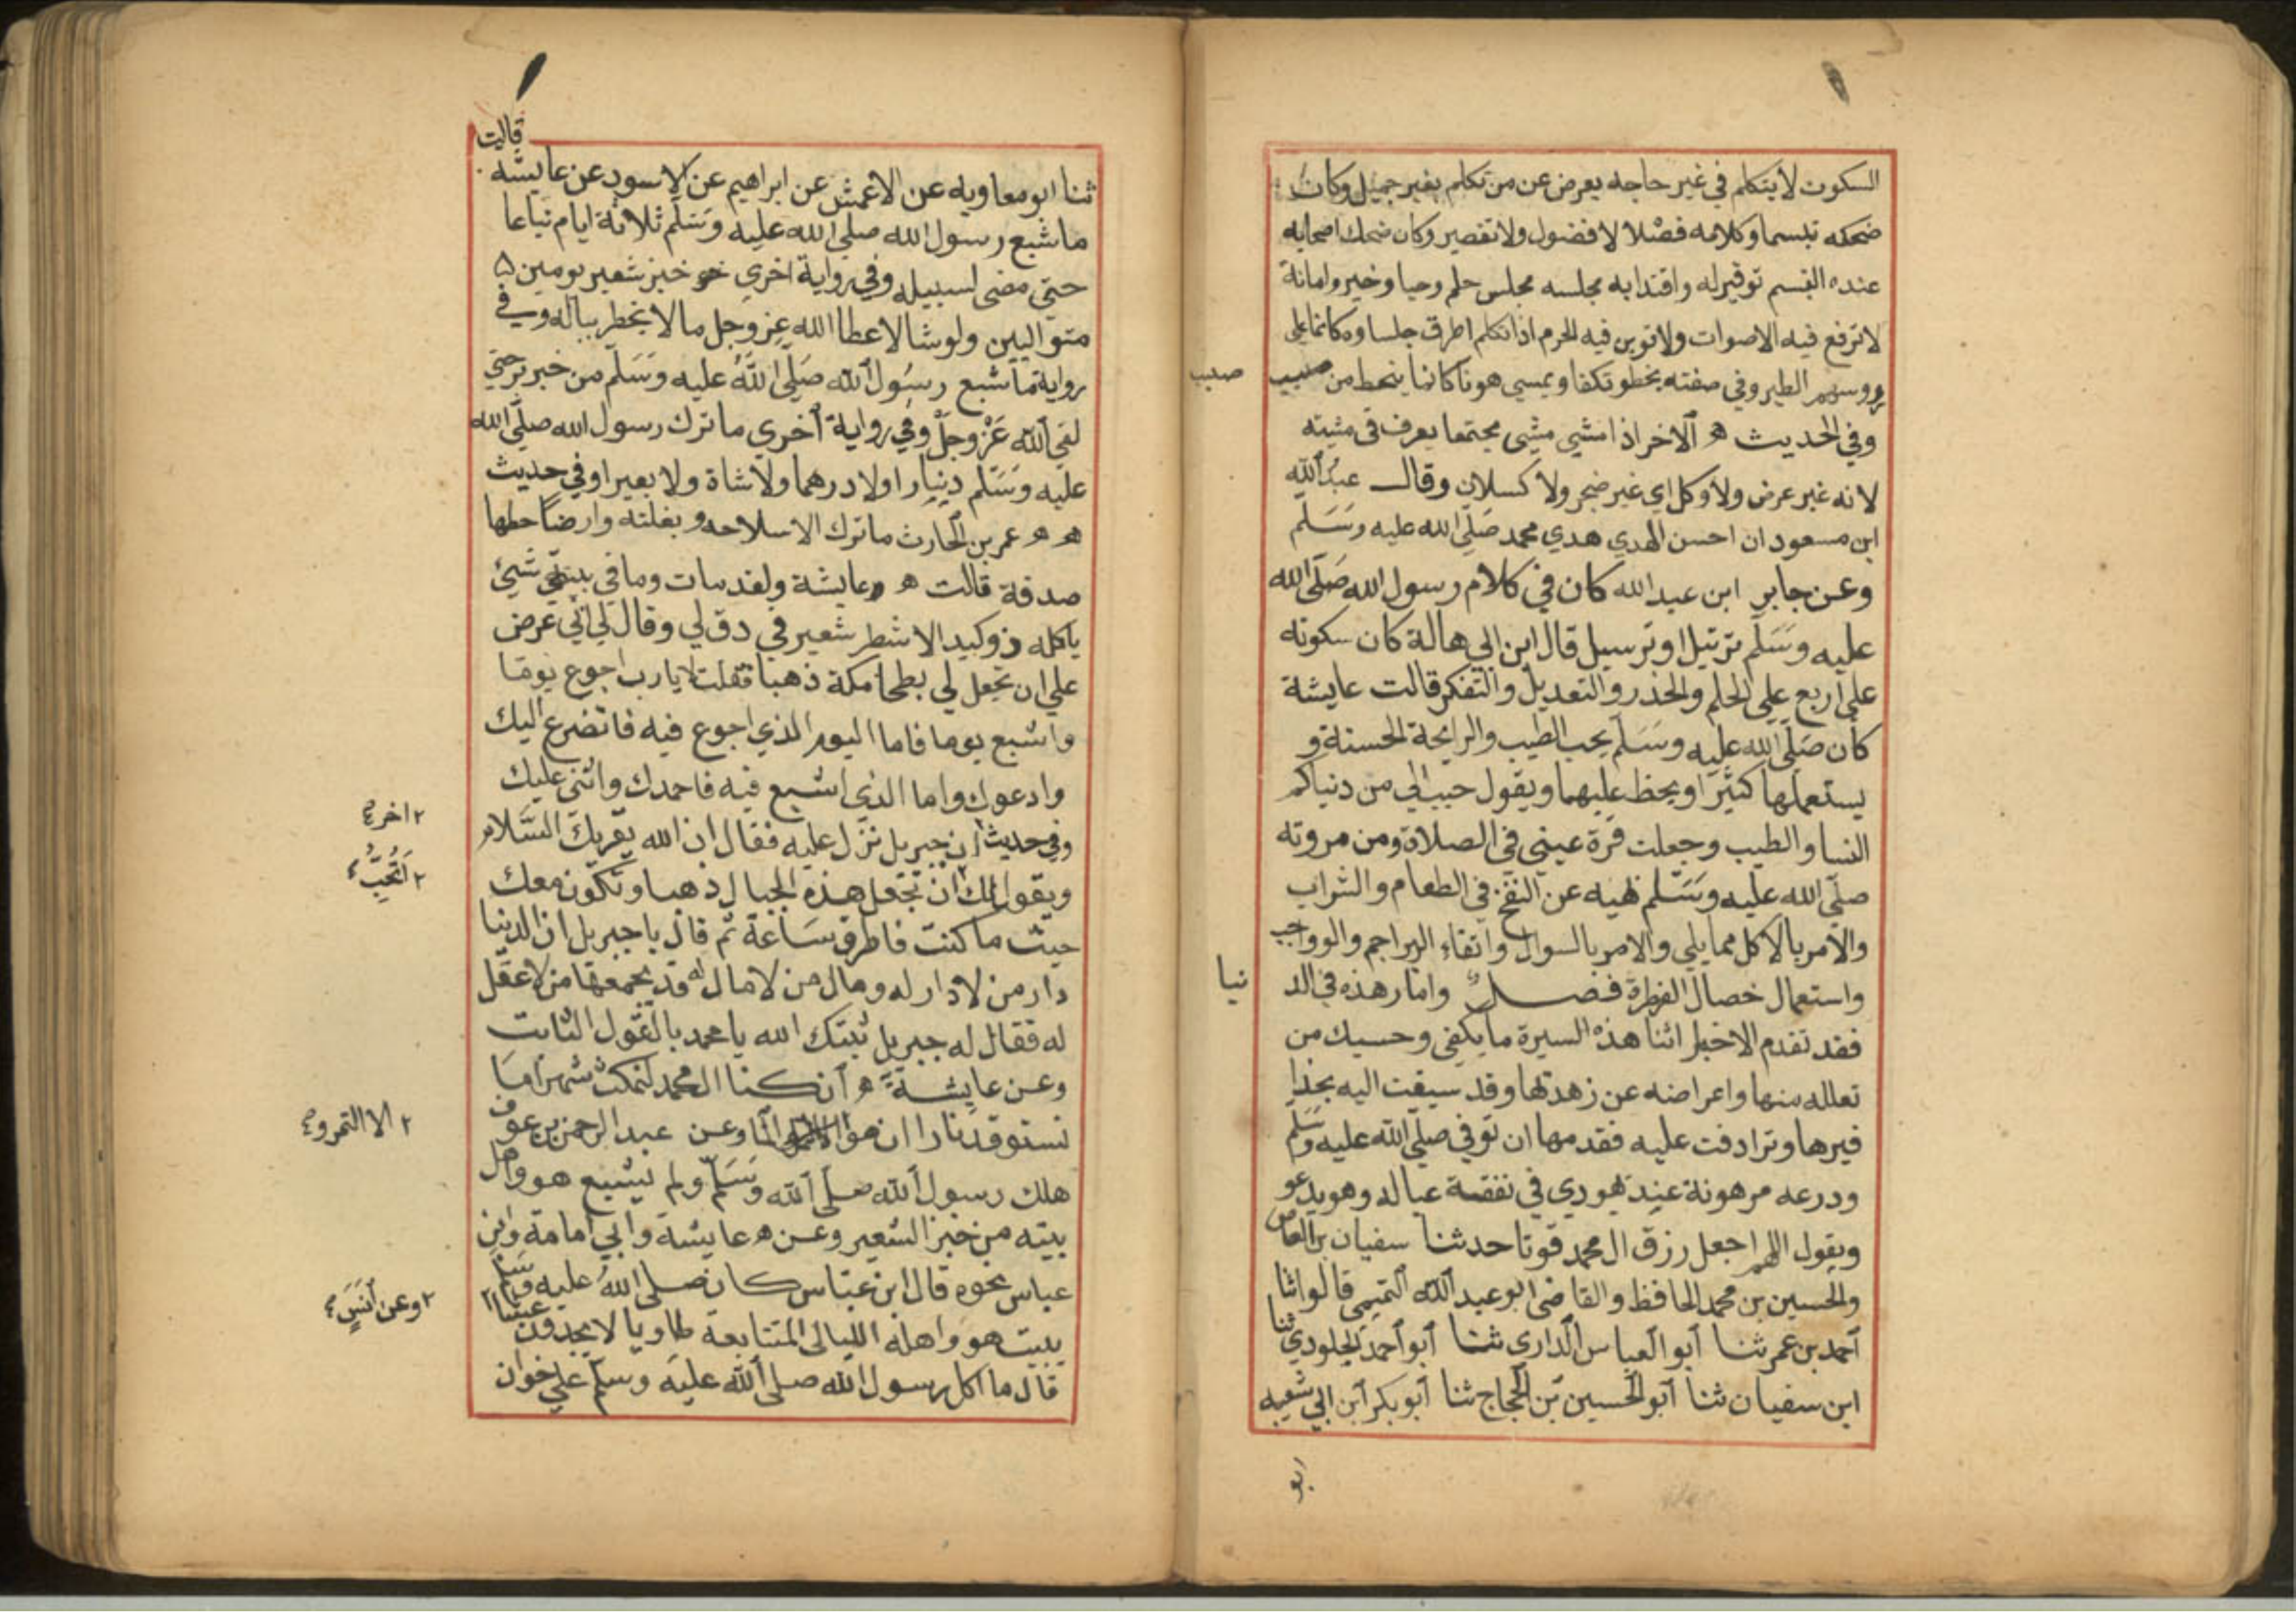 السكوت لا يتكلم في غير حاجه يعرض عن من تكلم بغير جميل وكان
ضحكه تبسما وكلامه فصلا لا فضول ولا تقصير وكان ضحك اصحابه
عنده التبسم توقيرله واقتدابه مجلسه مجلس حلم وحيا وخير وامانة
لا ترفع فيه الاصوات ولا توبن فيه الحرم اذا تكلم اطرق جلساوه كانما على
رووسهم الطير وفي صفته يخطو تكفا ويمسي هونا كانما ينحط من صبب
صبب
وفي الحديث ه الاخر اذا مشي مشي مجتمعا يعرف في مشيته
لانه غير عرض ولا وكل اي غير ضجر ولا كسلان وقال عبد الله
ابن مسعود ان احسن الهدي هدي محمد صلى الله عليه وسلم
وعن جابر ابن عبد الله كان في كلام رسول الله صلى الله
عليه وسلم ترتيل او ترسيل قال ابن ابي هالة كان سكوته
علي اربع علي الحلم والحذر والتعديل والتفكر قالت عايشة
كان صلى الله عليه وسلم يحب الطيب والرايحة الحسنة و
يستعملها كثيرا ويحظ عليهما ويقول حبب الي من دنياكم
النسا والطيب وجعلت قرة عيني في الصلاة ومن مروته
صلى الله عليه وسلم نهيه عن النفخ في الطعام والشراب
والامر بالاكل مما يلي والامر بالسواك وانقاء البراجم والرواجب
واستعمال خصال الفطرة فصل واما زهده في الد
نيا
فقد تقدم الاخبار اثنا هذه السيرة ما يكفي وحسبك من
تقلله منها واعراضه عن زهدتها وقد سيقت اليه بحذا
فيرها وترادفت عليه فقدمها ان توفي صلى الله عليه وسلم
ودرعه مرهونة عند يهودي في نفقة عياله وهو يدعو
ويقول اللهم اجعل رزق ال محمد قوتا حدثنا سفيان بن العاص
والحسين بن محمد الحافظ والقاضي ابو عبد الله التميمي قالوا ثنا
أحمد بن عمر ثنا أبو العباس الداري ثنا أبو أحمد الجلودي ثنا
ابن سفيان ثنا أبو الحسين بن الحجاج ثنا أبو بكر ابن ابي شيبه
ابو
ثنا ابو معاويه عن الاعمش عن ابراهيم عن الاسود عن عايشه قالت
ما شبع رسول الله صلي الله عليه وسلم ثلاثة ايام تباعا
حتي مضى لسبيله وفي رواية اخري خبز شعير يومين
متواليين ولوشا لاعطاا الله عز وجل مالا يخطر بباله وفي
رواية ما شبع رسول الله صلى الله عليه وسلم من خبز بر حتي
لقي الله عز وجل وفي رواية أخري ما ترك رسول الله صلى الله
عليه وسلم دينارا ولا درهما ولا شاة ولا بعيرا وفي حديث
ه ه عمر بن الحارث ما ترك الا سلاحه وبغلته وارضا جعلها
صدقة قالت ه عايشة ولقد مات وما في بيتي شيئ
ياكله ذو كبد الا شطر شعير في رق لي وقال لي اني عرض
علي ان تجعل لي بطحا مكة ذهبا فقلت لا يارب اجوع يوما
واشبع يوما فاما اليوم الذي اجوع فيه فاتضرع اليك
وادعوك واما الذي اشبع فيه فاحمدك واثني عليك
وفي حديث ان جبريل نزل عليه فقال ان الله يقريك السلام
٢ اخر
ويقول لك ان تجعل هذه الجبال ذهبا وتكون معك
٢ أتحب
حيث ما كنت فاطرق ساعة ثم قال يا جبريل ان الدنيا
دار من لا دار له ومال من لا مال له قد يجمعها من لا عقل
له فقال له جبريل ثبتك الله يا محمد بالقول الثابت
وعن عايشة ه أن كنا ال محمد لنمكث شهرا ما
نستوقد نارا ان هو الا الما وعن عبد الرحمن بن عوف
٢ الا التمر و
هلك رسول الله صلى الله وسلم ولم يشبع هو واهل
بيته من خبز الشعير وعن ه عايشة وابي امامة وابن
عباس نحوه قال ابن عباس كان صلى الله عليه وسلم
يبيت هو واهله الليالي المتتابعة طاويا لا يجدون عشاا
٢ وعن أنس
قال ما اكل رسول الله صلى الله عليه وسلم علي خوان